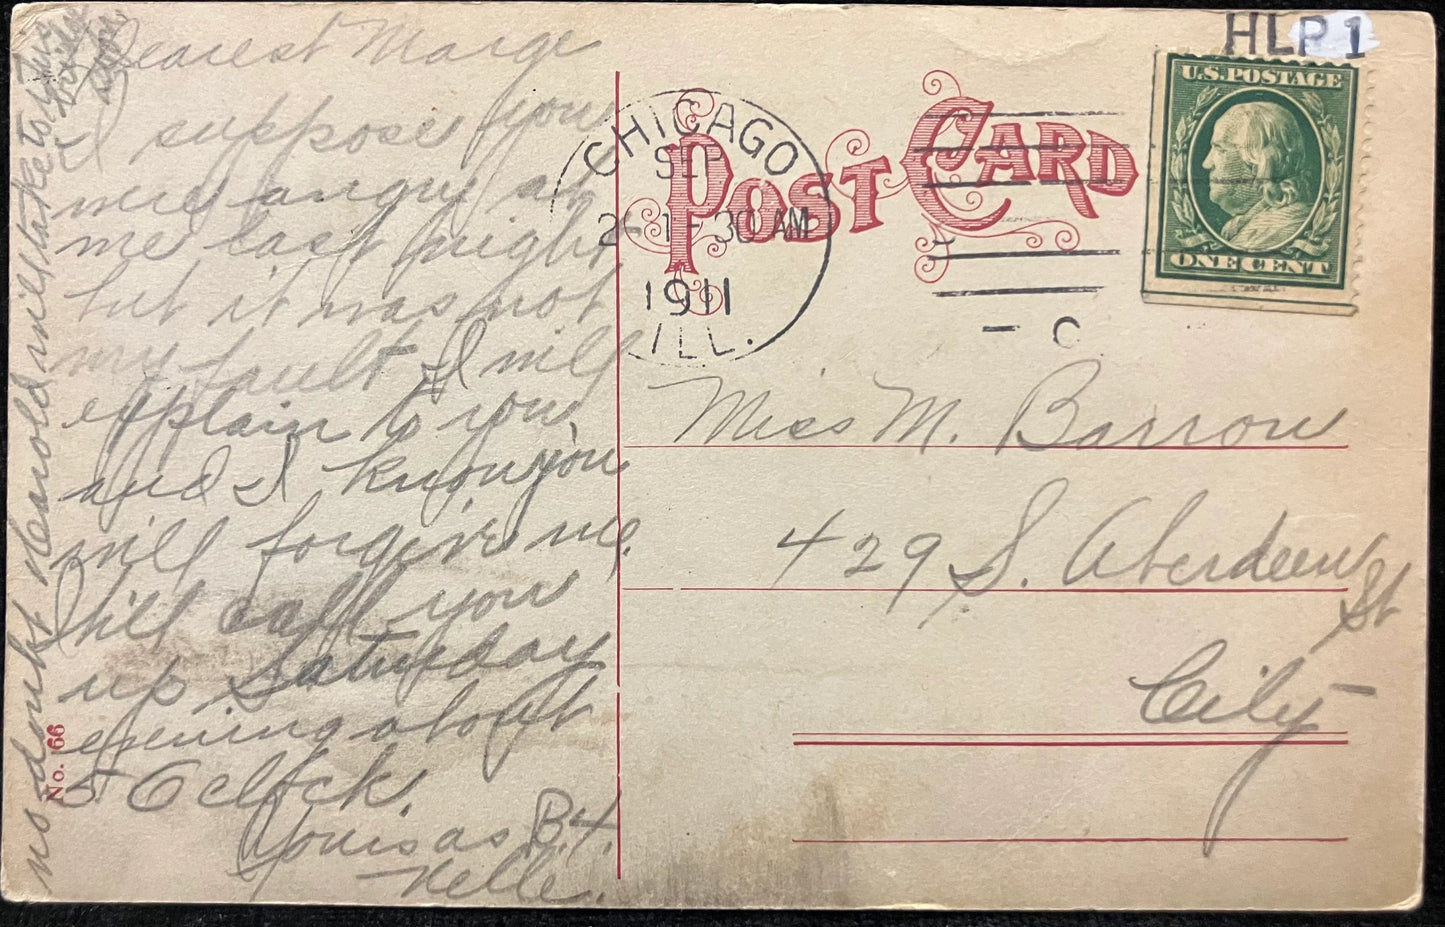 Dearest Marge
I suppose you
was angry at
me last night
but it was not
my fault I will
explain to you,
and I know you
will forgive me.
I will call you
up Saturday
evening about
5 O clock.
Yours as B.4.
Nelle.
no doubt Harold will take to
No. 166
POST CARD
CHICAGO
SEP
2 1-30 AM
1911
ILL.
C
HLP 1
U.S. POSTAGE
ONE CENT
Miss M. Barrow
429 S. Aberdeen
St
City